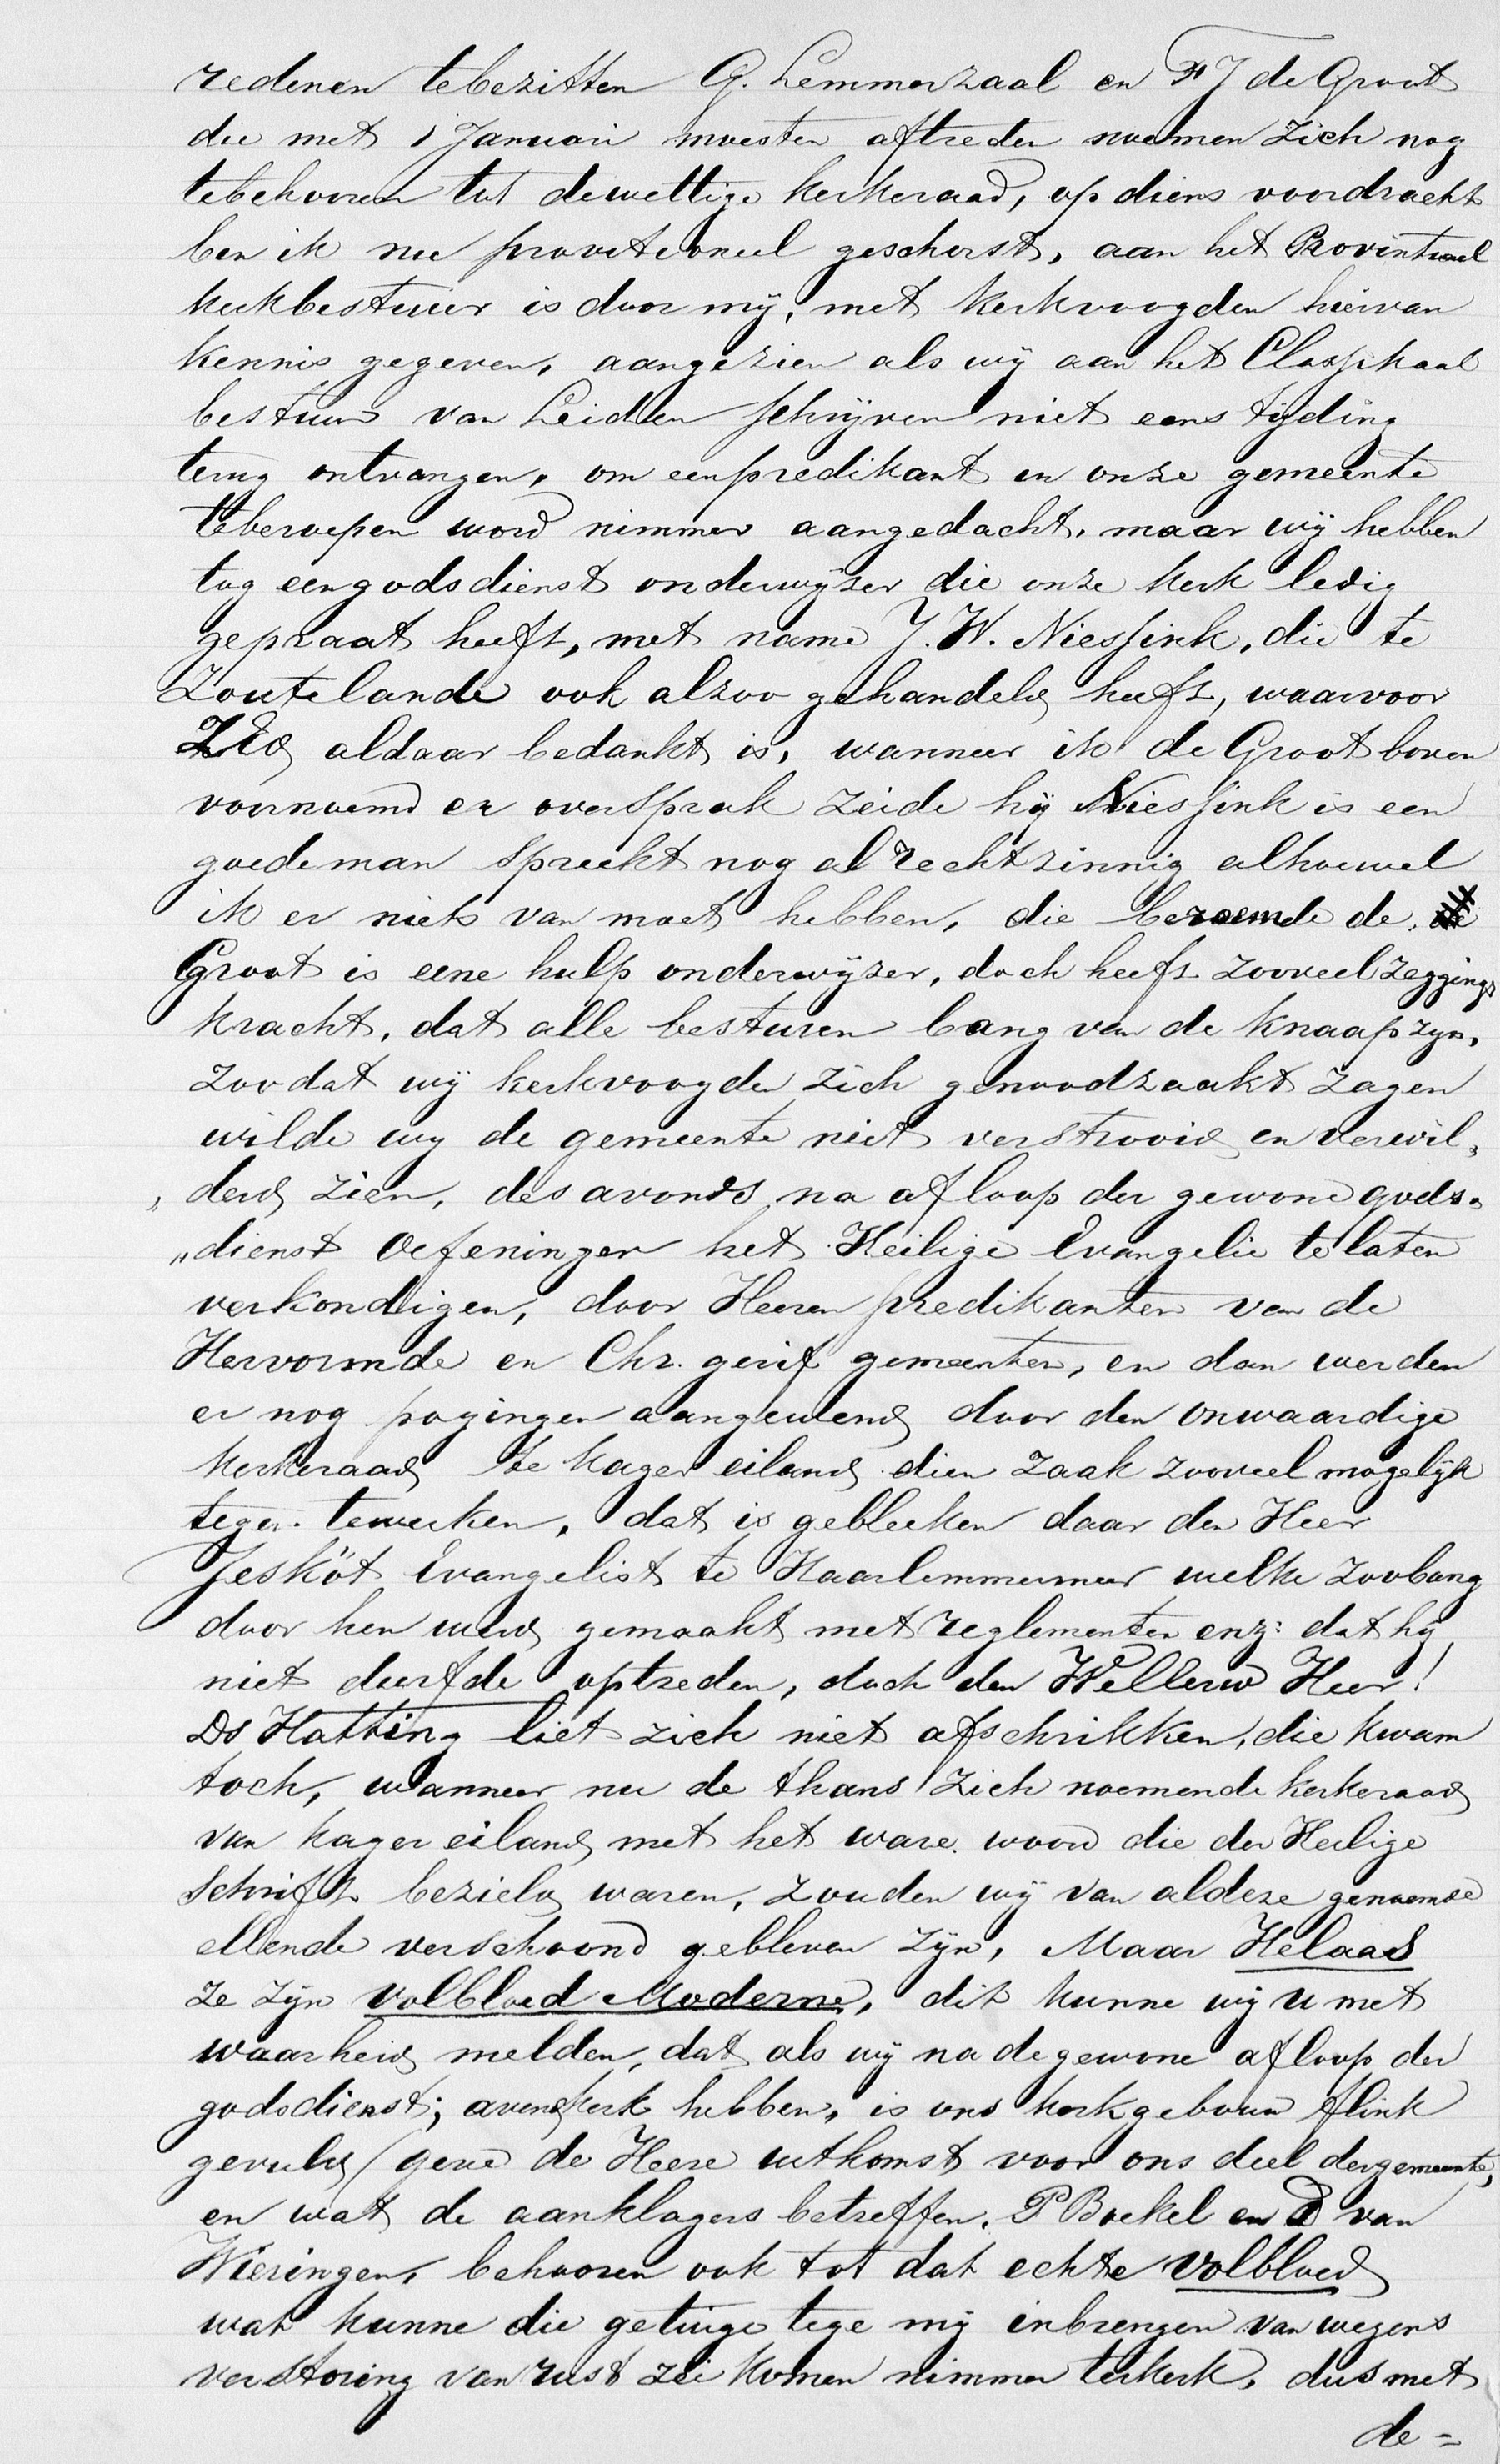 redenen tebezitten G. Lemmerzaal en F J de Groot
die met 1 Januari moesten aftreden noemen zich nog
tebehooren tot dewettige kerkeraad, op diens voordracht
ben ik nu provitioneel geschorst, aan het Provintiaal
kerkbestuur is door mij, met kerkvoogden hiervan
kennis gegeven, aangezien als wij aan het Classikaal
bestuur van Leiden schrijven niet eens tijding
terug ontvangen, om eenpredikant in onze gemeente
teberoepen word nimmer aangedacht, maar wij hebben
tog eengodsdienst onderwijzer die onze kerk ledig
gepraat heeft, met name J. W. Niessink, die te
Zoutelande ook alzoo gehandeld heeft, waarvoor
ZEd aldaar bedankt is, wanneer ik de Groot boven
voornoemd er oversprak zeide hij Niessink is een
goedeman spreekt nog al rechtzinnig alhoewel
ik er niets van moet hebben, die beroemde de
Groot is eene hulp onderwijzer, doch heeft zooveel zeggings
kracht, dat alle besturen bang van de knaap zyn,
zoodat wij kerkvoogden zich genoodzaakt zagen
wilde wy de gemeente niet verstrooid en verwil„
„derd zien, des avonds na afloop der gewone gods„
„dienst oefeningen het Heilige Evangelie te laten
verkondigen, door Heeren predikanten van de
Hervormde en Chr. geref gemeenten, en dan werden
er nog pogingen aangewend door den onwaardige
kerkeraad te Kager eiland dien zaak zooveel mogelijk
tegen tewerken, dat is gebleeken daar den Heer
Jesköt Evangelist te Haarlemmermeer welke zoobang
door hen werd gemaakt met reglementen enz: dat hij
niet deurfde optreden, doch den Welleerw Heer!
Ds Hatting liet zich niet afschrikken, die kwam
toch, wanneer nu de thans zich noemende kerkeraad
van Kager eiland met het ware woord die der Heilige
Schrift bezield waren, zouden wij van aldeze genoemde
ellende verschoond gebleven zijn, Maar Helaas
ze zijn volbloed Moderne, dit kunne wij u met
waarheid melden, dat als wij na de gewone afloop der
godsdienst; avendkerk hebben, is ons kerkgebouw flink
gevuld (geve de Heere uitkomst voor ons deel dergemeente,
en wat de aanklagers betreffen, P Boekel en D van
Wieringen, behooren ook tot dat echte volbloed
wat kunne die getuige tege mij inbrengen van wegens
verstoring van rust zei komen nimmer terkerk, dus met
de=